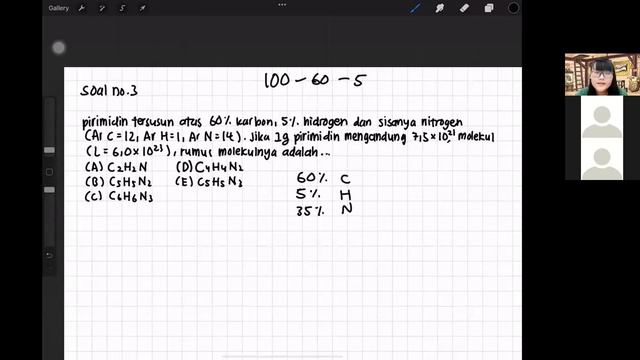 Gallery
100 - 60 - 5
Soal no.3
pirimidin tersusun atas 60% karbon, 5% hidrogen dan sisanya nitrogen
(Ar C = 12, Ar H = 1, Ar N = 14). Jika 1g pirimidin mengandung 7,5 × 10²¹ molekul
(L = 6,0 × 10²³), rumus molekulnya adalah...
(A) C2H2N (D) C4H4N2
(B) C5H5N2 (E) C5H5N3
(C) C6H6N3
60% C
5% H
35% N